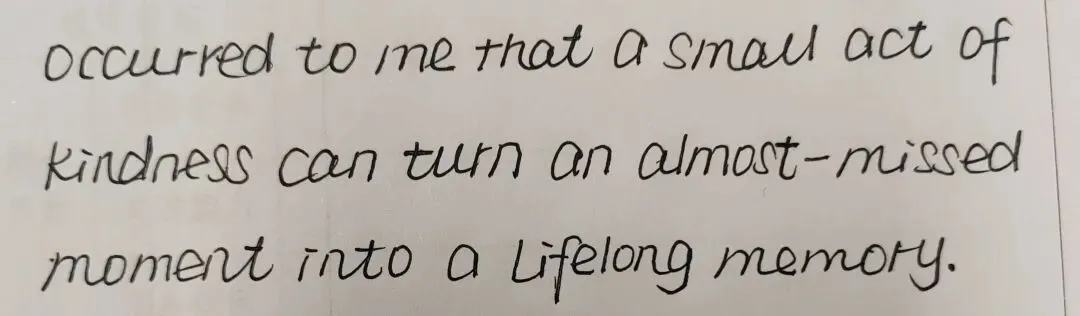 occurred to me that a small act of
kindness can turn an almost-missed
moment into a lifelong memory.